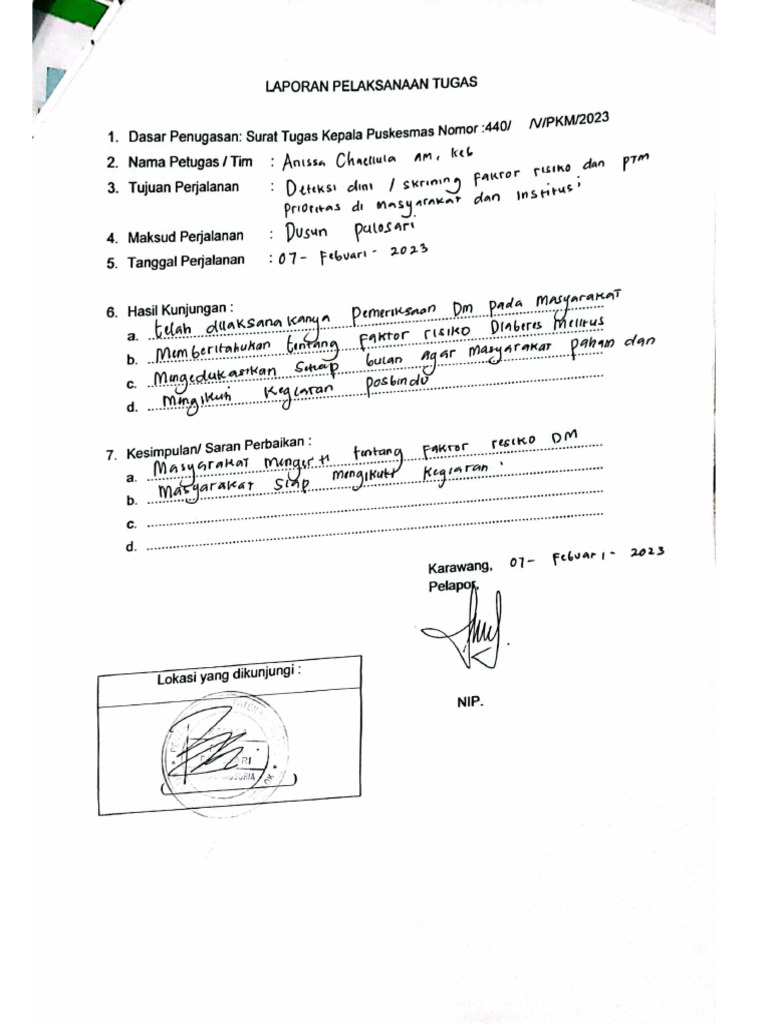 LAPORAN PELAKSANAAN TUGAS
1. Dasar Penugasan: Surat Tugas Kepala Puskesmas Nomor :440/ /V/PKM/2023
2. Nama Petugas / Tim : Anissa Chaellula AM, keb
3. Tujuan Perjalanan : Deteksi dini / skrining faktor risiko dan PTM
prioritas di masyarakat dan Institusi
4. Maksud Perjalanan : Dusun Pulosari
5. Tanggal Perjalanan : 07 - Febuari - 2023
6. Hasil Kunjungan :
a. telah dilaksanakanya pemeriksaan Dm pada masyarakat
b. Memberitahukan tentang faktor risiko Diabetes Melitus
c. Mengedukasikan setiap bulan agar masyarakat paham dan
d. Mengikuti kegiatan posbindu
7. Kesimpulan/ Saran Perbaikan :
a. Masyarakat mengerti tentang faktor resiko DM
b. Masyarakat siap mengikuti kegiatan
c.
d.
Karawang, 07 - Febuari - 2023
Pelapor,
NIP.
Lokasi yang dikunjungi :